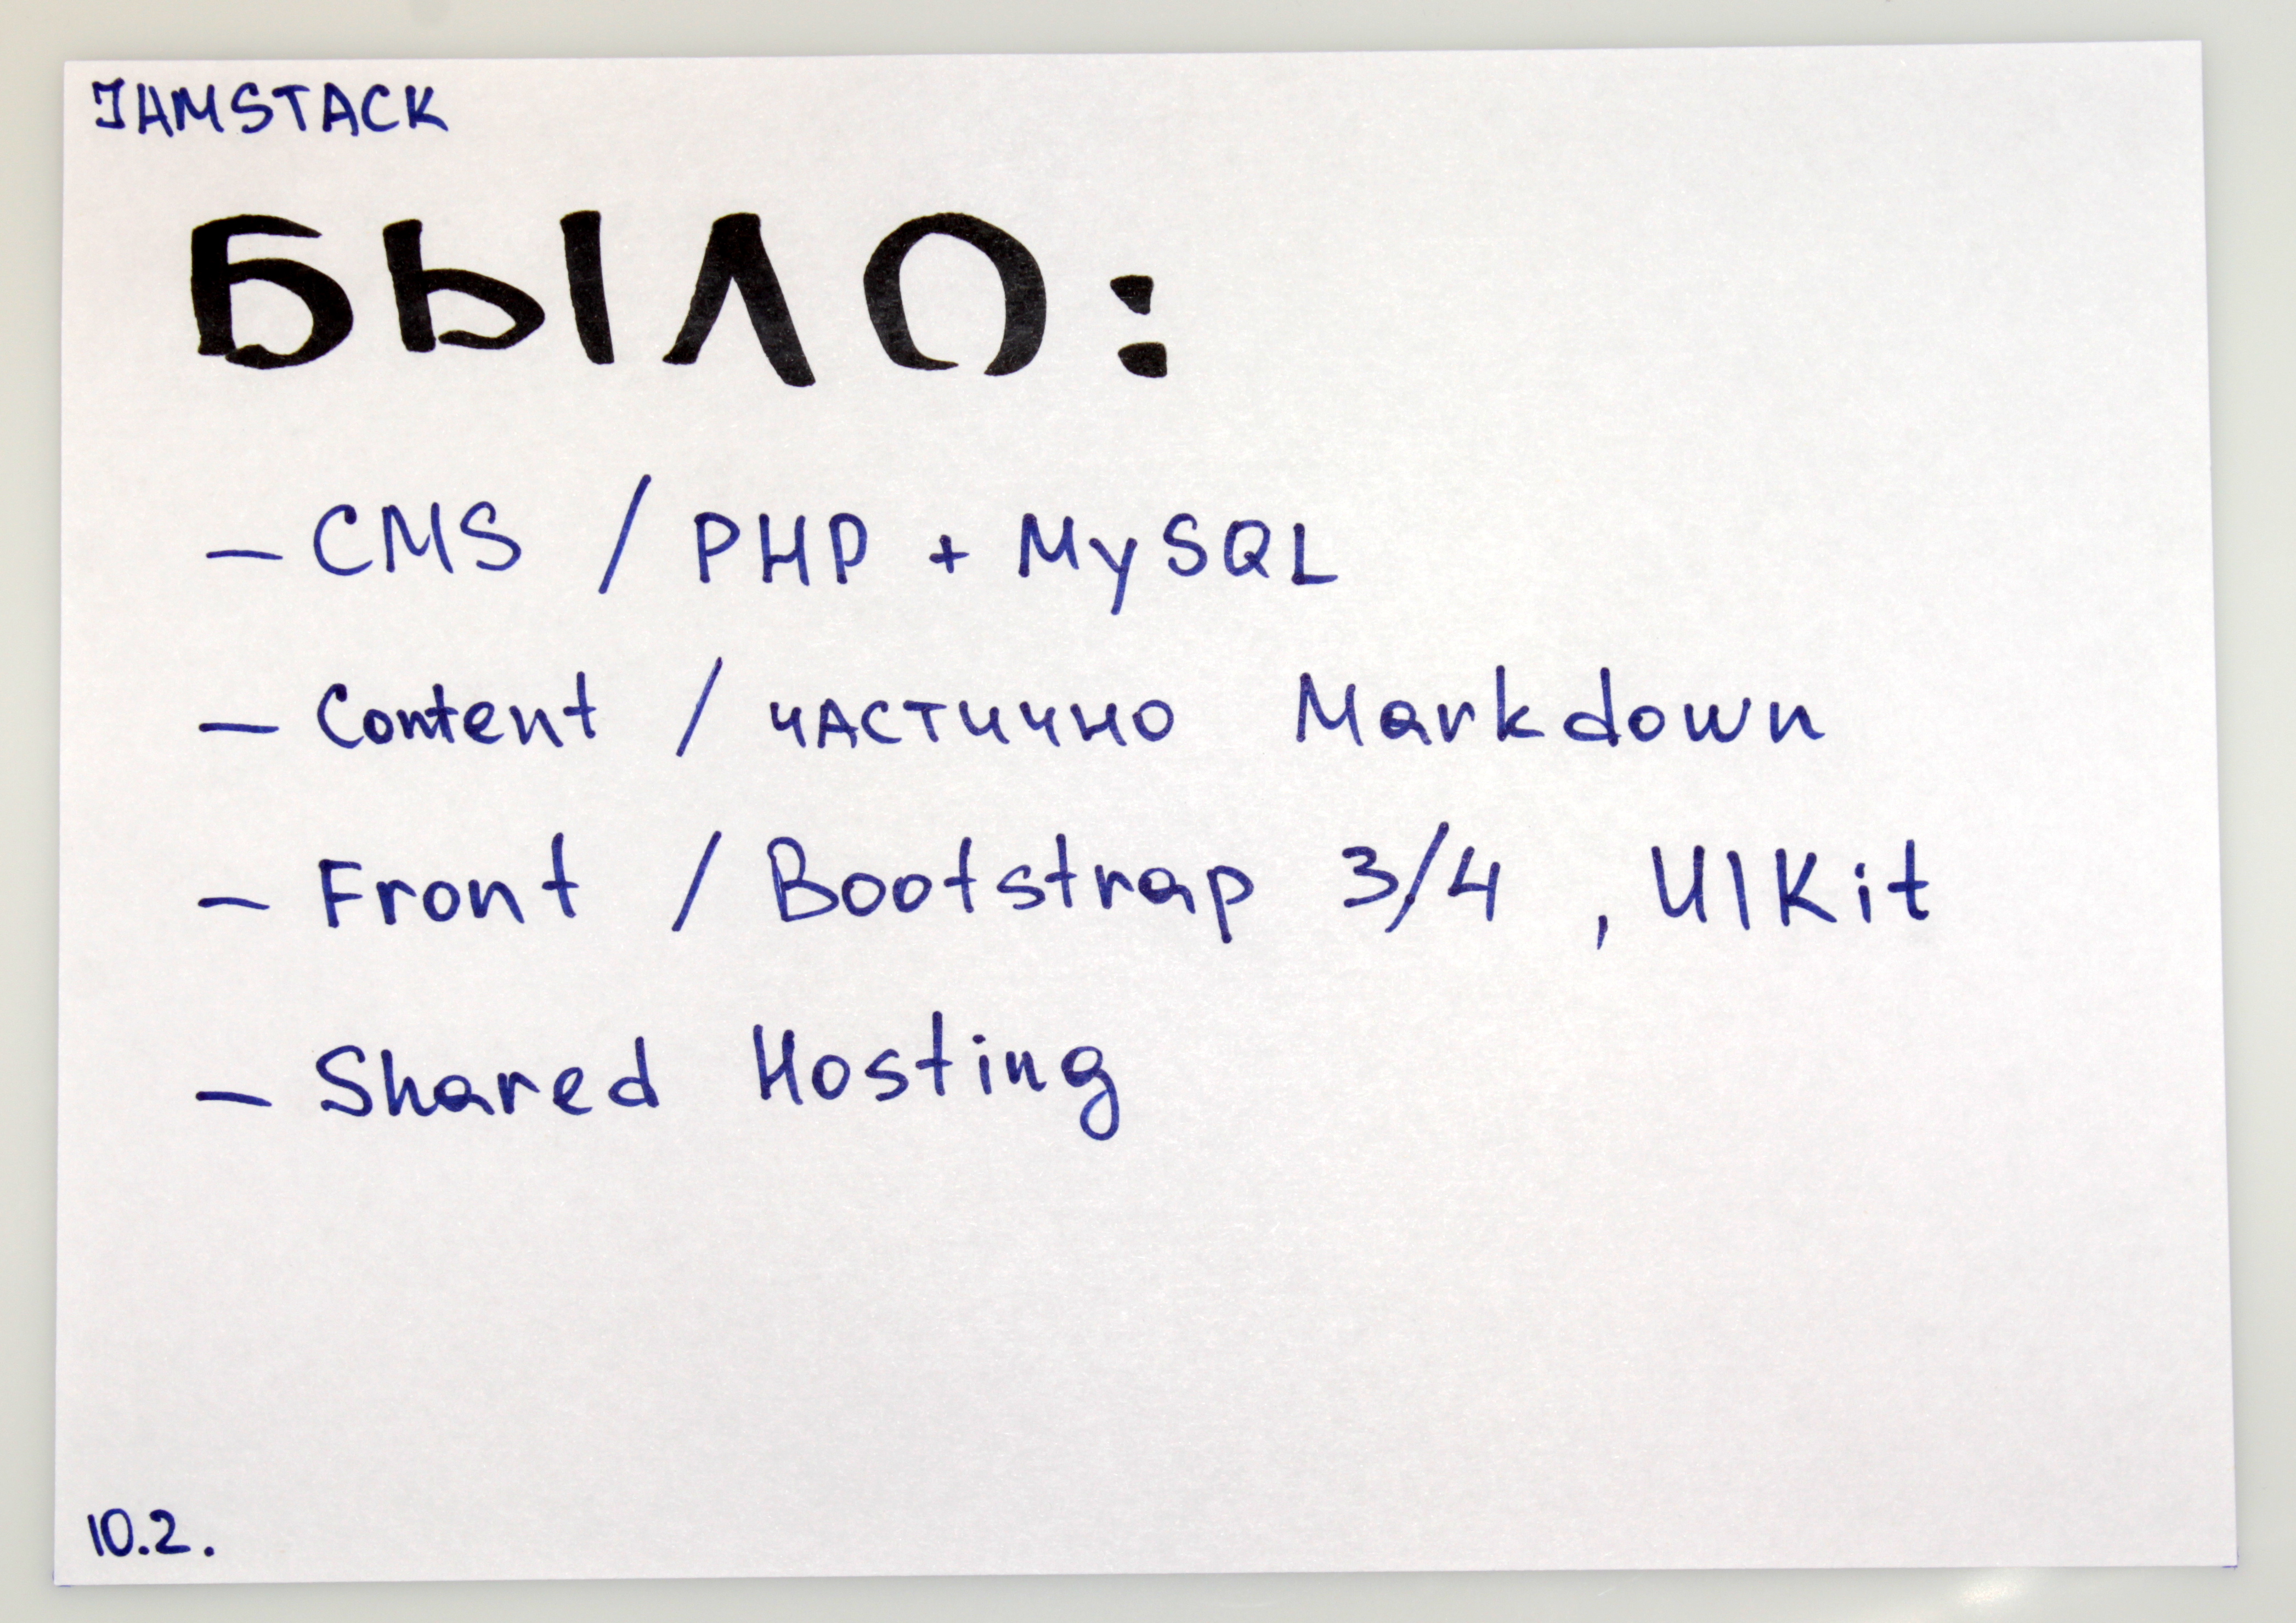 JAMSTACK
БЫЛО:
– CMS / PHP + MySQL
– Content / частично Markdown
– Front / Bootstrap 3/4 , UIKit
– Shared Hosting
10.2.